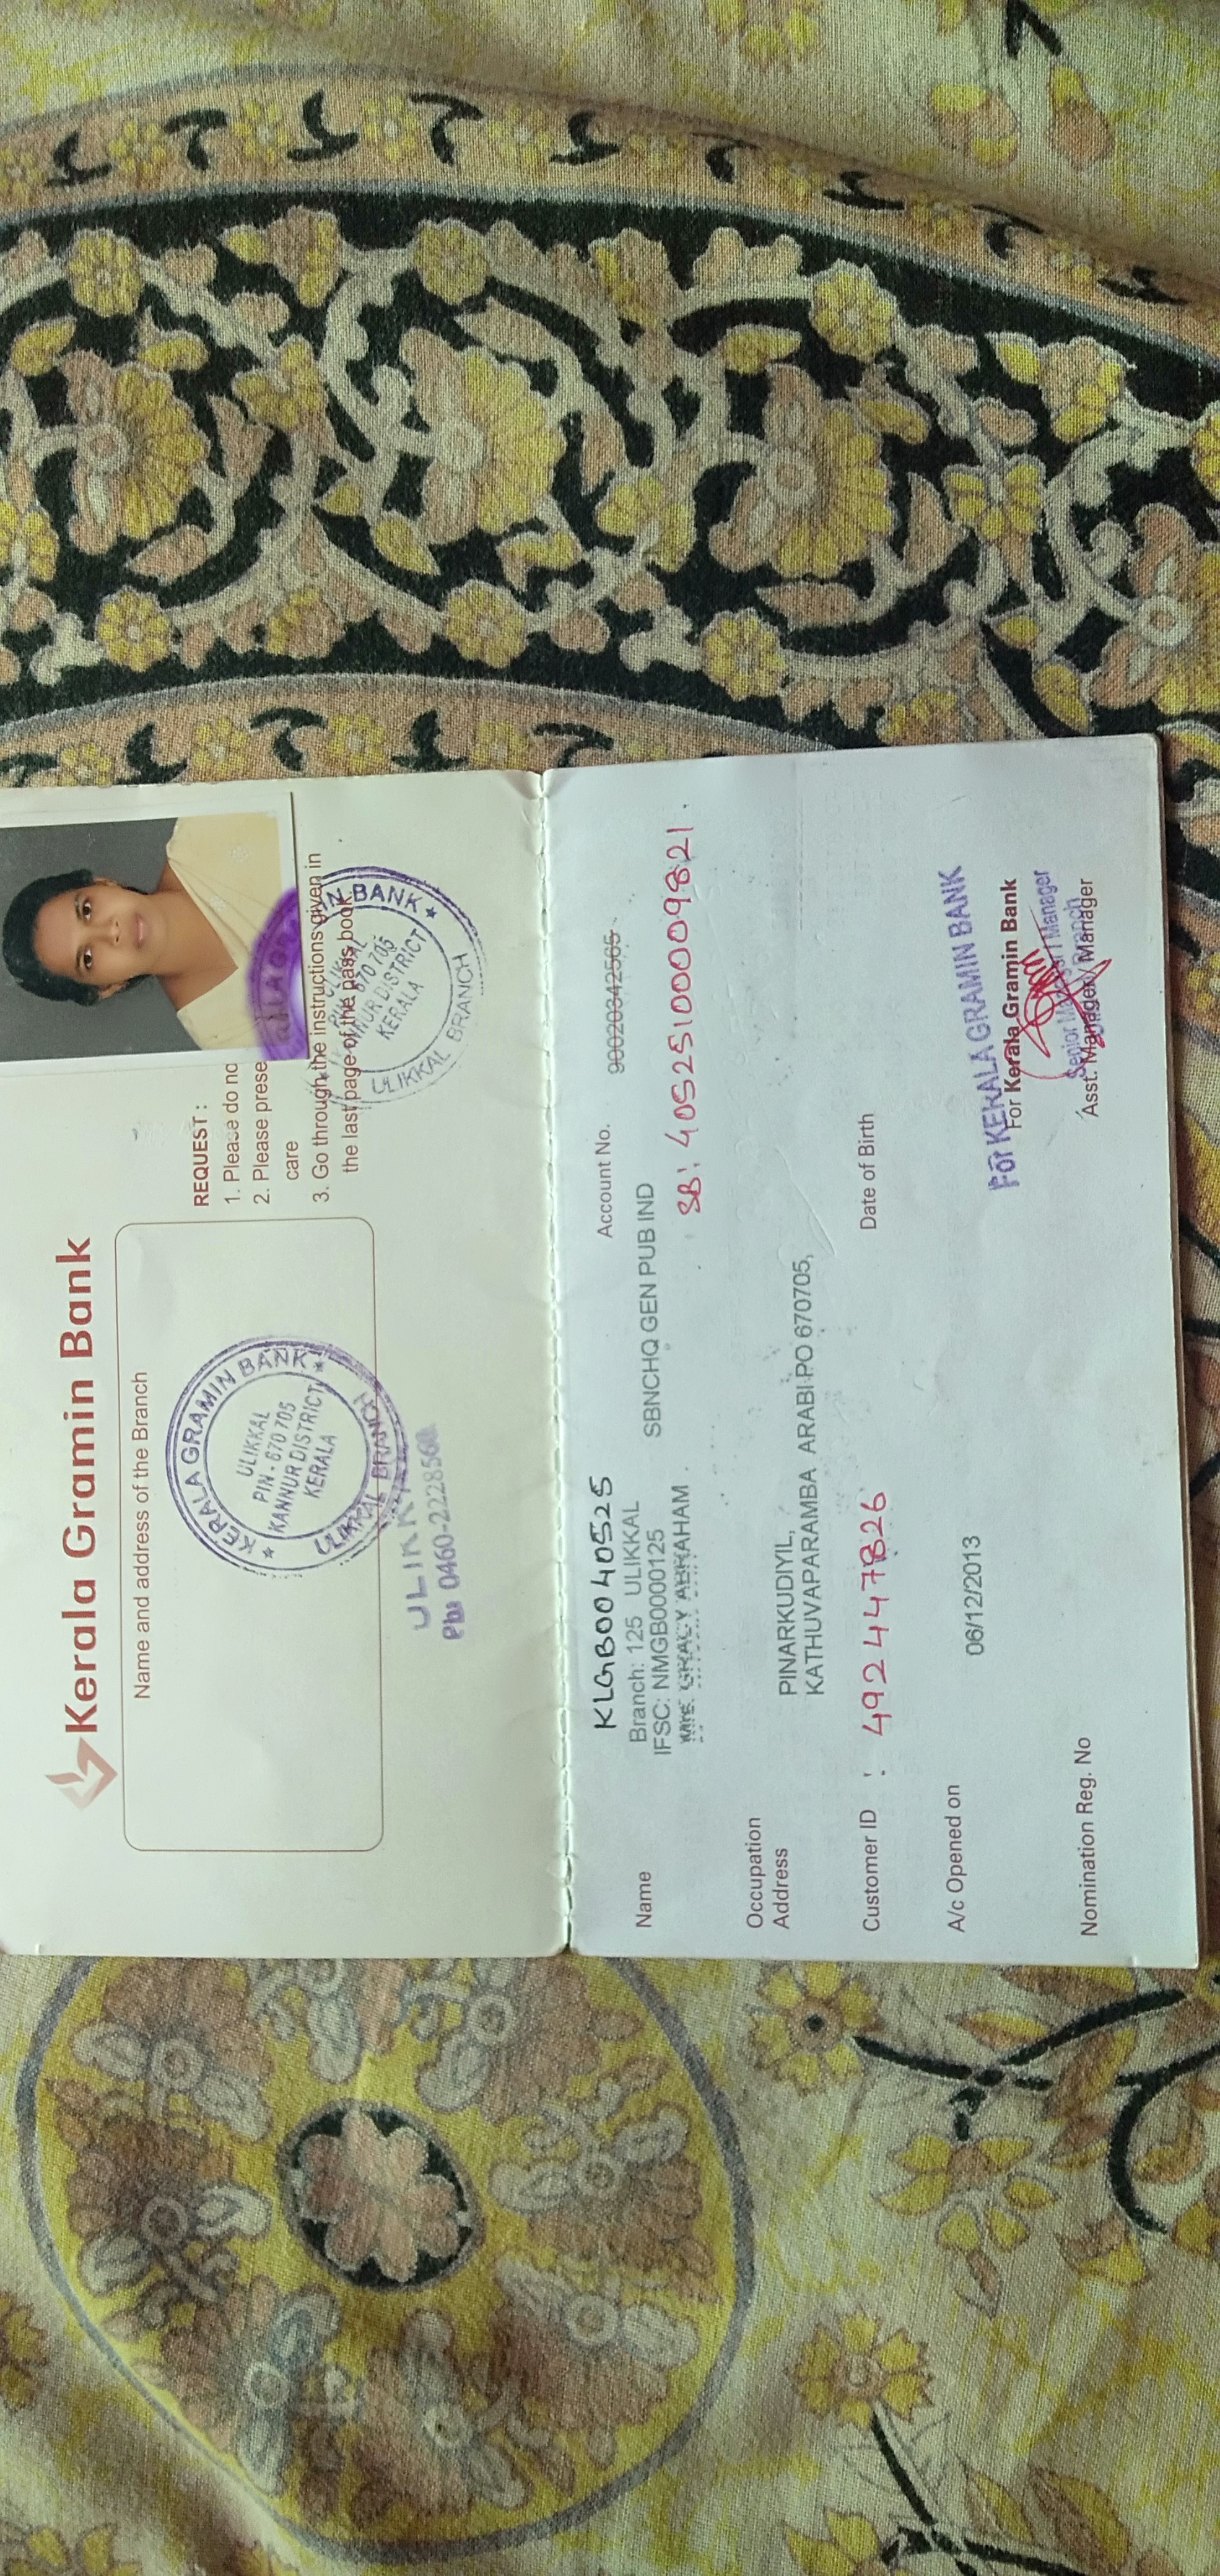 Kerala Gramin Bank
Name and address of the Branch
★ KERALA GRAMIN BANK ★
ULIKKAL
PIN - 670 705
KANNUR DISTRICT
KERALA
ULIKKAL BRANCH
ULIKKAL
Ph: 0460-2228560
REQUEST :
1. Please do no
2. Please prese
care
3. Go through the instructions given in
the last page of the pass book
IN BANK ★
670 705
NUR DISTRICT
KERALA
ULIKKAL BRANCH
KLGB0040525
Account No. 90020342565
Branch: 125 ULIKKAL
IFSC: NMGB0000125 SBNCHQ GEN PUB IND
Name GRACY ABRAHAM
SB: 40525100009821
Occupation
Address PINARKUDIYIL,
KATHUVAPARAMBA ARABI PO 670705,
Customer ID : 492447826
Date of Birth
A/c Opened on 06/12/2013
For KERALA GRAMIN BANK
For Kerala Gramin Bank
Senior Manager / Manager
Nomination Reg. No
Asst. Manager / Manager